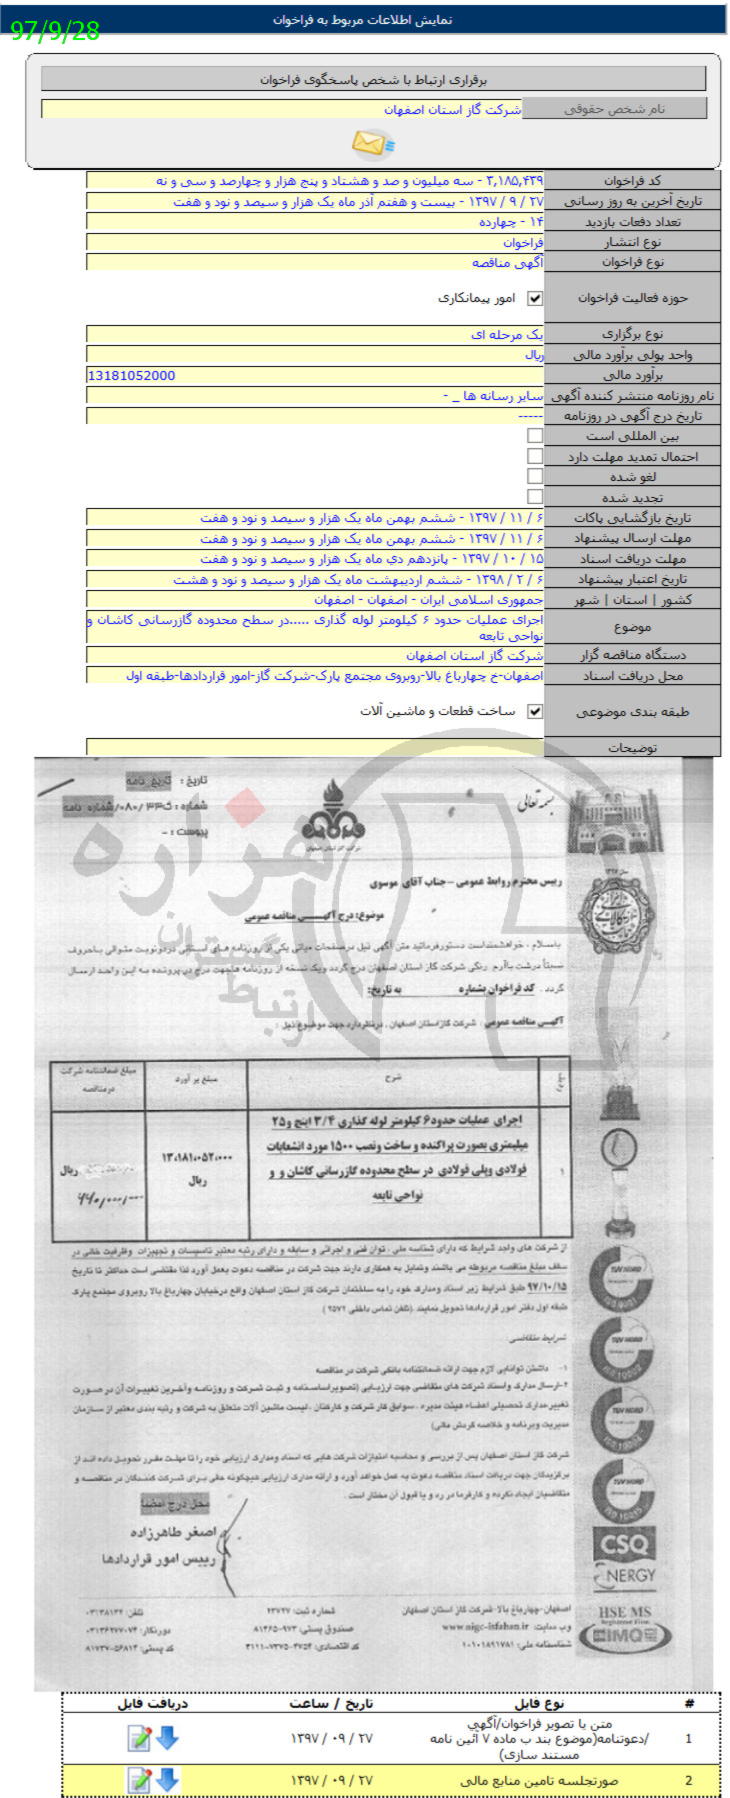 نمایش اطلاعات مربوط به فراخوان
97/9/28
برقراری ارتباط با شخص پاسخگوی فراخوان
نام شخص حقوقی شرکت گاز استان اصفهان
کد فراخوان ۳,۱۸۵,۴۳۹ - سه میلیون و صد و هشتاد و پنج هزار و چهارصد و سی و نه
تاریخ آخرین به روز رسانی ۲۷ / ۹ / ۱۳۹۷ - بیست و هفتم آذر ماه یک هزار و سیصد و نود و هفت
تعداد دفعات بازدید ۱۴ - چهارده
نوع انتشار فراخوان
نوع فراخوان آگهی مناقصه
حوزه فعالیت فراخوان امور پیمانکاری
نوع برگزاری یک مرحله ای
واحد پولی برآورد مالی ریال
برآورد مالی 13181052000
نام روزنامه منتشر کننده آگهی سایر رسانه ها _ -
تاریخ درج آگهی در روزنامه -----
بین المللی است
احتمال تمدید مهلت دارد
لغو شده
تجدید شده
تاریخ بازگشایی پاکات ۶ / ۱۱ / ۱۳۹۷ - ششم بهمن ماه یک هزار و سیصد و نود و هفت
مهلت ارسال پیشنهاد ۶ / ۱۱ / ۱۳۹۷ - ششم بهمن ماه یک هزار و سیصد و نود و هفت
مهلت دریافت اسناد ۱۵ / ۱۰ / ۱۳۹۷ - پانزدهم دي ماه یک هزار و سیصد و نود و هفت
تاریخ اعتبار پیشنهاد ۶ / ۲ / ۱۳۹۸ - ششم اردیبهشت ماه یک هزار و سیصد و نود و هشت
کشور | استان | شهر جمهوری اسلامی ایران - اصفهان - اصفهان
موضوع اجرای عملیات حدود ۶ کیلومتر لوله گذاری .....در سطح محدوده گازرسانی کاشان و
نواحی تابعه
دستگاه مناقصه گزار شرکت گاز استان اصفهان
محل دریافت اسناد اصفهان-خ چهارباغ بالا-روبروی مجتمع پارک-شرکت گاز-امور قراردادها-طبقه اول
طبقه بندی موضوعی ساخت قطعات و ماشین آلات
توضیحات
بسمه تعالی
تاریخ : تاریخ نامه
شماره : گ۳۳/۰۸۰/شماره نامه
پیوست : -
شرکت گاز استان اصفهان
هزاره
گستران
ارتباط
رییس محترم روابط عمومی – جناب آقای موسوی
موضوع: درج آگهـــی مناقصه عمومی
باسلام ، خواهشمنداست دستورفرمائید متن آگهی ذیل درصفحات میانی یکی از روزنامه های استانی دردونوبت متوالی باحروف
نسبتاً درشت باآرم رنگی شرکت گاز استان اصفهان درج گردد ویک نسخه از روزنامه هاجهت درج درپرونده به این واحد ارسال
گردد . کد فراخوان بشماره به تاریخ:
آگهـی مناقصه عمومی : شرکت گازاستان اصفهان ، درنظردارد جهت موضوع ذیل :
ردیف شرح مبلغ بر آورد مبلغ ضمانتنامه شرکت
درمناقصه
۱ اجرای عملیات حدود۶ کیلومتر لوله گذاری ۳/۴ اینچ و۲۵
میلیمتری بصورت پراکنده و ساخت ونصب ۱۵۰۰ مورد انشعابات
فولادی وپلی فولادی در سطح محدوده گازرسانی کاشان و و
نواحی تابعه
۱۳،۱۸۱،۰۵۲،۰۰۰
ریال
ریال
۶۶۰,۰۰۰,۰۰۰
از شرکت های واجد شرایط که دارای شناسه ملی ، توان فنی و اجرائی و سابقه و دارای رتبه معتبر تاسیسات و تجهیزات وظرفیت خالی در
سقف مبلغ مناقصه مربوطه می باشند وتمایل به همکاری دارند جهت شرکت در مناقصه دعوت بعمل آورد لذا مقتضی است حداکثر تا تاریخ
۹۷/۱۰/۱۵ طبق شرایط زیر اسناد ومدارک خود را به ساختمان شرکت گاز استان اصفهان واقع درخیابان چهارباغ بالا روبروی مجتمع پارک
طبقه اول دفتر امور قراردادها تحویل نمایند (تلفن تماس داخلی ۲۵۷۲ )
شرایط متقاضی:
۱- داشتن توانایی لازم جهت ارائه ضمانتنامه بانکی شرکت در مناقصه
۲-ارسال مدارک واسناد شرکت های متقاضی جهت ارزیـابی (تصویراساسنامه و ثبت شرکت و روزنامه وآخرین تغییـرات آن در صـورت
تغییر مدارک تحصیلی اعضاء هیئت مدیره ، سوابق کار شرکت و کارکنان ، لیست ماشین آلات متعلق به شرکت و رتبه بندی معتبر از سـازمان
مدیریت وبرنامه و خلاصه گردش مالی)
شرکت گاز استان اصفهان پس از بررسی و محاسبه امتیازات شرکت هایی که اسناد ومدارک ارزیابی خود را تا مهلت مقـرر تحویـل داده انـد از
برگزیدگان جهت دریافت اسناد مناقصه دعوت به عمل خواهد آورد و ارائه مدارک ارزیابی هیچگونه حقی بـرای شـرکت کننـدگان در مناقصـه و
متقاضیان ایجاد نکرده و کارفرما در رد و یا قبول آن مختار است .
محل درج امضا
اصغر طاهرزاده
رییس امور قراردادها
TUV NORD
TUV NORD
TUV NORD
TUV NORD
CSQ
ENERGY
HSE MS
IMQ
اصفهان-چهارباغ بالا-شرکت گاز استان اصفهان شماره ثبت: ۲۳۷۲۷ تلفن: ۰۳۱۳۸۱۳۲
وب سایت: www.nigc-isfahan.ir صندوق پستی: ۹۷۳-۸۱۴۶۵ دورنگار: ۰۳۱۳۶۲۷۷۰۷۴
شناسنامه ملی: ۱۰۱۰۱۸۹۱۷۸۱ کد اقتصادی: ۴۷۵۴-۷۳۷۵-۴۱۱۱ کد پستی: ۵۶۸۱۳-۸۱۷۳۷
# نوع فایل تاریخ / ساعت دریافت فایل
1 متن یا تصویر فراخوان/آگهي
/دعوتنامه(موضوع بند ب ماده ۷ آئین نامه
مستند سازی)
۲۷ / ۰۹ / ۱۳۹۷
2 صورتجلسه تامین منابع مالی ۲۷ / ۰۹ / ۱۳۹۷